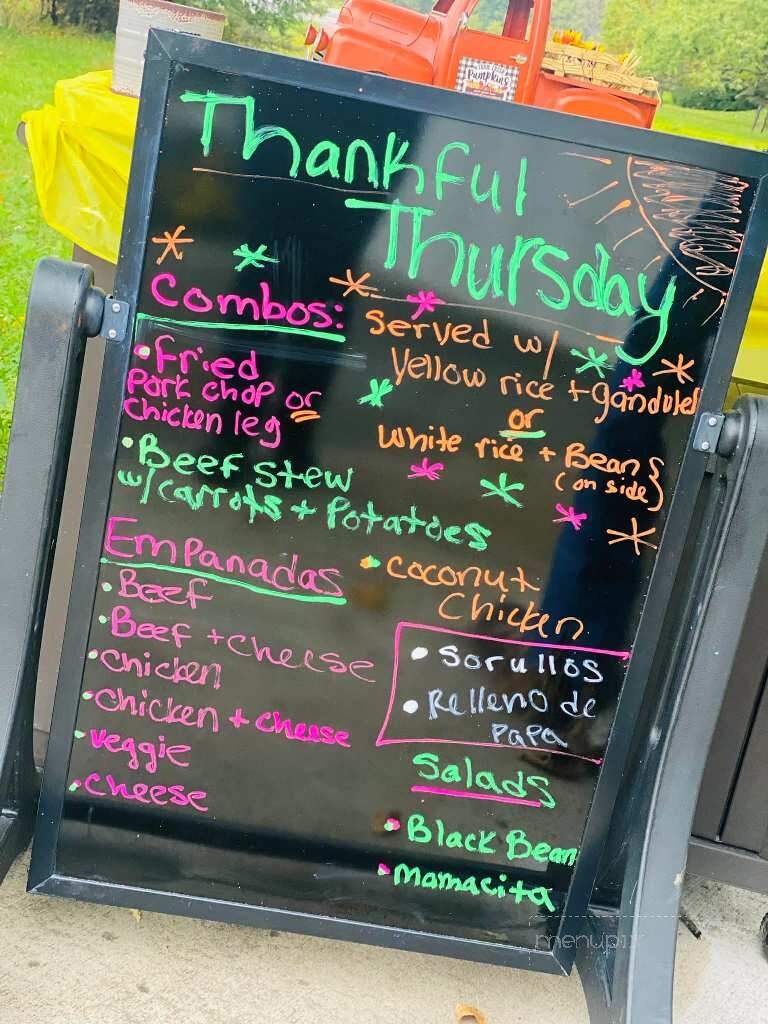 Pumpkins
Thankful
Thursday
Combos:
• Fried
Pork chop or
Chicken leg
• Beef stew
w/carrots + Potatoes
served w/
Yellow rice + gandules
or
white rice + Beans
(on side)
Empanadas
• Beef
• Beef + cheese
• chicken
• chicken + cheese
• veggie
• cheese
• coconut
Chicken
• Sorullos
• Relleno de
Papa
Salads
• Black Bean
• Mamacita
menupix